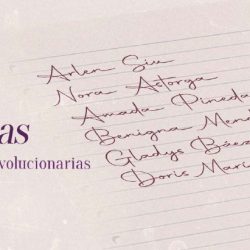 as
volucionarias
Arlen Siu
Nora Astorga
Amada Pineda
Benigna Mené
Gladys Báez
Doris Marí